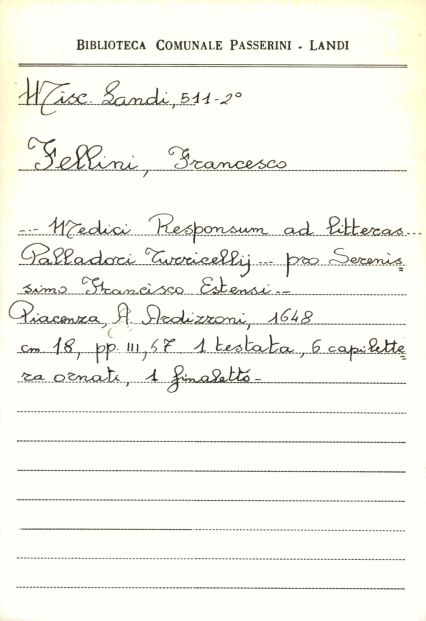 BIBLIOTECA COMUNALE PASSERINI - LANDI
Misc. Landi, 511-2°
Fellini, Francesco
... Medici Responsum ad litteras...
Palladoci Turricellij... pro Serenis=
simo Francisco Estensi...
Piacenza, A. Ardizzoni, 1648
cm 18, pp. III, 57 1 testata, 6 capilette=
ra ornati, 1 finaletto-